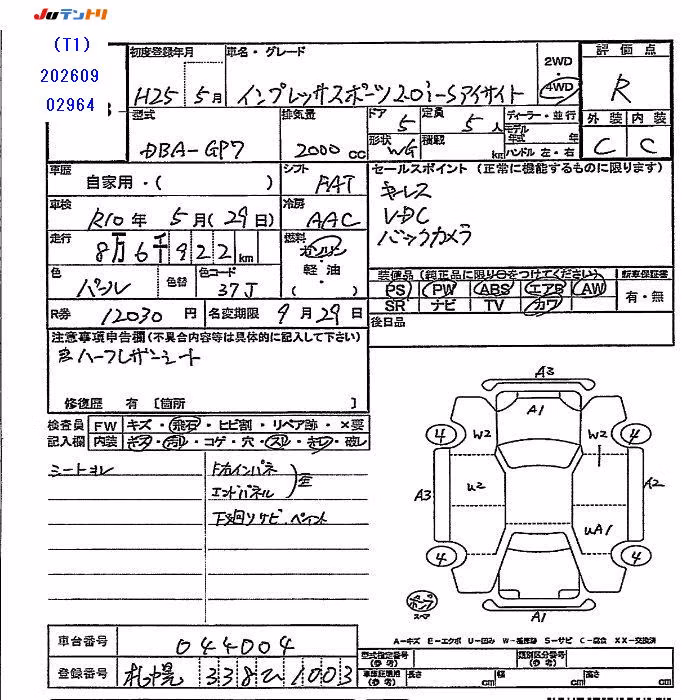 JUテントリ
(T1)
202609
02964
初度登録年月
車名・グレード
2WD
4WD
評価点
H25 5月
インプレッサスポーツ2.0i-Sアイサイト
R
型式
排気量
ドア
定員
ディーラー・並行
外装 内装
5
5人
モデル年式 年
DBA-GP7
2000cc
形状 WG
積載 km
ハンドル 左・右
C C
車歴
自家用・( )
シフト
FAT
セールスポイント (正常に機能するものに限ります)
キーレス
VDC
バックカメラ
車検
R10年 5月(29日)
冷房
AAC
走行
8万6千922km
燃料
ガソリン
軽油
( )
色
パール
色替
色コード
37J
装備品(純正品に限り○をつけてください)
新車保証書
PS PW ABS エアB AW
有・無
SR ナビ TV カワ
R券 12030円
名変期限 9月29日
後日品
注意事項申告欄(不具合内容等は具体的に記入して下さい)
ハーフレザーシート
修復歴 有 [箇所 ]
検査員
記入欄
FW キズ・飛石・ヒビ割・リペア跡・×要
内装 キズ・汚れ・コゲ・穴・スリ・キレ・破レ
シートヨレ
下右インパネ
エンドパネル
下廻りサビ、ペイント
A3
A1
4 W2 W2 4
A3 U2 A2
UA1
4 4
A1
A-キズ E-エクボ U-凹み W-補修跡 S-サビ C-腐食 XX-交換済
車台番号 044004
型式指定番号(参考)
類別区分番号(参考)
登録番号 札幌 338 ひ 1003
長さ cm 幅 cm 高さ cm